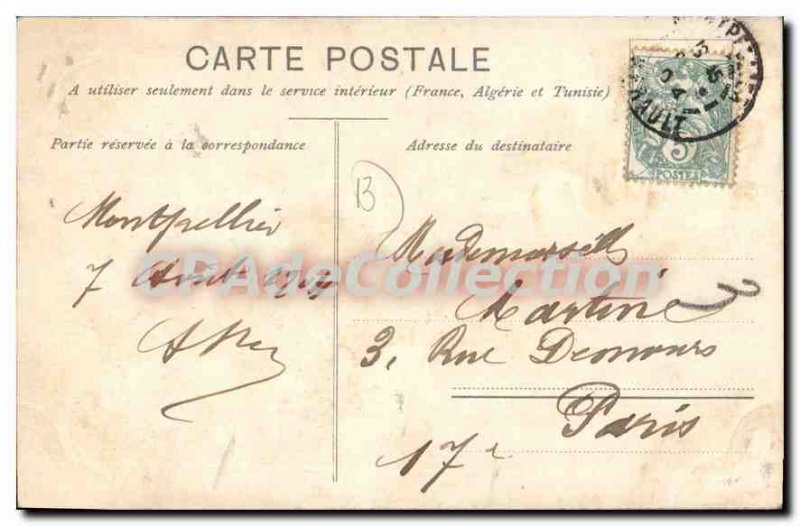 CARTE POSTALE
A utiliser seulement dans le service intérieur (France, Algérie et Tunisie)
Partie réservée à la correspondance
Adresse du destinataire
B
Montpellier
7 Août 1904
Mademoiselle
Martine
3, Rue Demours
Paris
17e
5
POSTES
HÉRAULT
CPAdeCollection.com